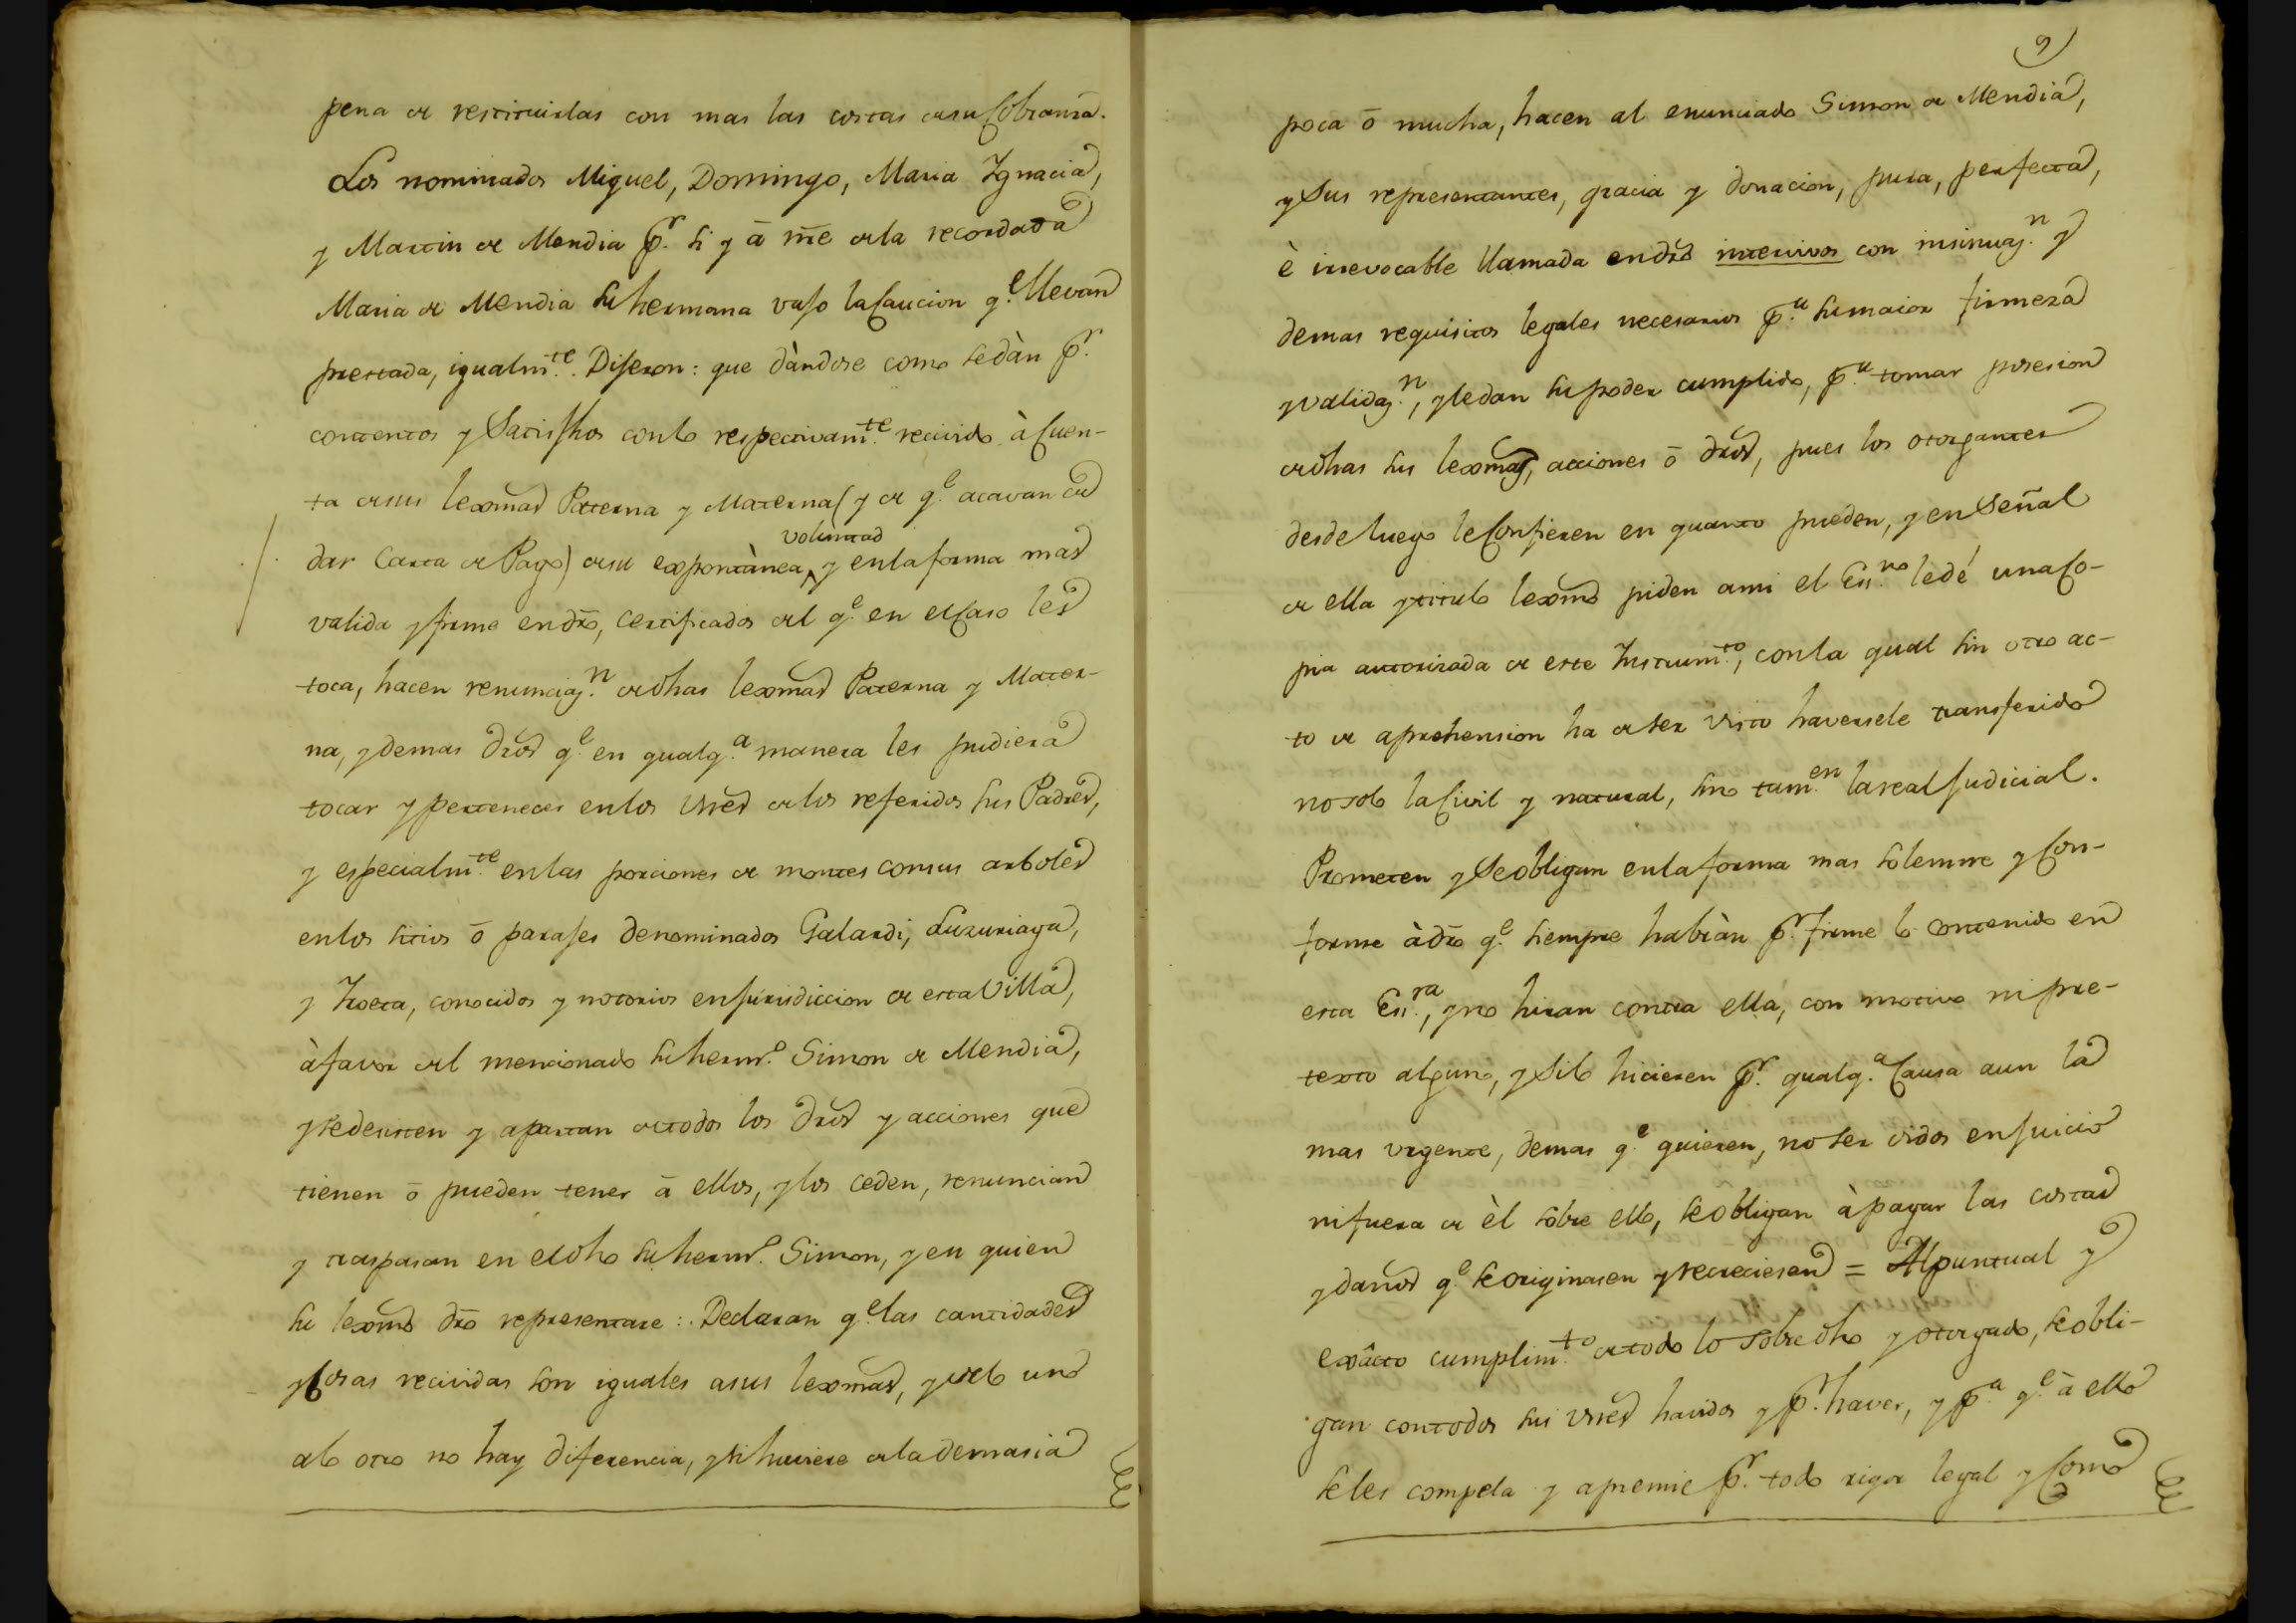 pena de restituirlas con mas las costas de su Cobranza.
Los nominados Miguel, Domingo, Maria Ignacia,
y Martin de Mendia pr. si y à nre. de la recordada
Maria de Mendia su hermana vajo la Caucion qe. llevan
prestada, igualmte. Dijeron: que dàndose como se dàn pr.
contentos y Satisfhos con lo respectivamte. recivido à Cuen-
ta de sus lexmas Paterna y Materna (y de qe. acavan de
dar Carta de Pago) de su expontànea voluntad y en la forma mas
valida y firme en dro, certificados del qe. en el Caso les
toca, hacen renunciaçn. de dhas lexmas Paterna y Mater-
na, y demas dros qe. en qualqa. manera les pudiera
tocar y pertenecer en los vnes de los referidos sus Padres,
y especialmte. en las porciones de montes con sus arboles
en los sitios ò parajes denominados Galardi, Luzuriaga,
y Troeta, conocidos y notorios en jurisdiccion de esta Villa,
à favor del mencionado su hermo. Simon de Mendia,
y se desisten y apartan de todos los dros y acciones que
tienen ò pueden tener à ellos, y los ceden, renuncian
y traspasan en el dho su hermo. Simon, y en quien
su lexmo dro representare: Declaran qe. las cantidades
y Cosas recividas son iguales a sus lexmas, y de lo uno
a lo otro no hay diferencia, y si huviere de la demasia
9
poca ò mucha, hacen al enunciado Simon de Mendia,
y Sus representantes, gracia y donacion, pura, perfecta,
è irrevocable llamada en dro intervivos con insinuaçn. y
demas requisitos legales necesarios pa. su maior firmeza
y validaçn., y le dan su poder cumplido, pa. tomar posesion
de dhas sus lexmas, acciones ò dros, pues los otorgantes
desde luego le Confieren en quanto pueden, y en Señal
de ella y titulo lexmo piden a mi el Essno. le dé una Co-
pia autorizada de este Instrumto., con la qual sin otro ac-
to de aprehension ha de ser visto haversele transferido
no solo la Civil y natural, sino tamen. la real Judicial.
Prometen y Se obligan en la forma mas solemne y Con-
forme à dro qe. siempre habràn pr. firme lo contenido en
esta Essra., y no hiran contra ella, con motivo ni pre-
texto alguno, y Si lo hicieren pr. qualqa. Causa aun la
mas vrgente, demas qe. quieren, no ser oidos en juicio
ni fuera de èl sobre ello, se obligan à pagar las costas
y daños qe. se originasen y recreciesen = Al puntual y
exâcto cumplimto. de todo lo sobre dho y otorgado, se obli-
gan con todos sus vnes havidos y pr. haver, y pa. qe. à ello
se les compela y apremie pr. todo rigor legal y Como